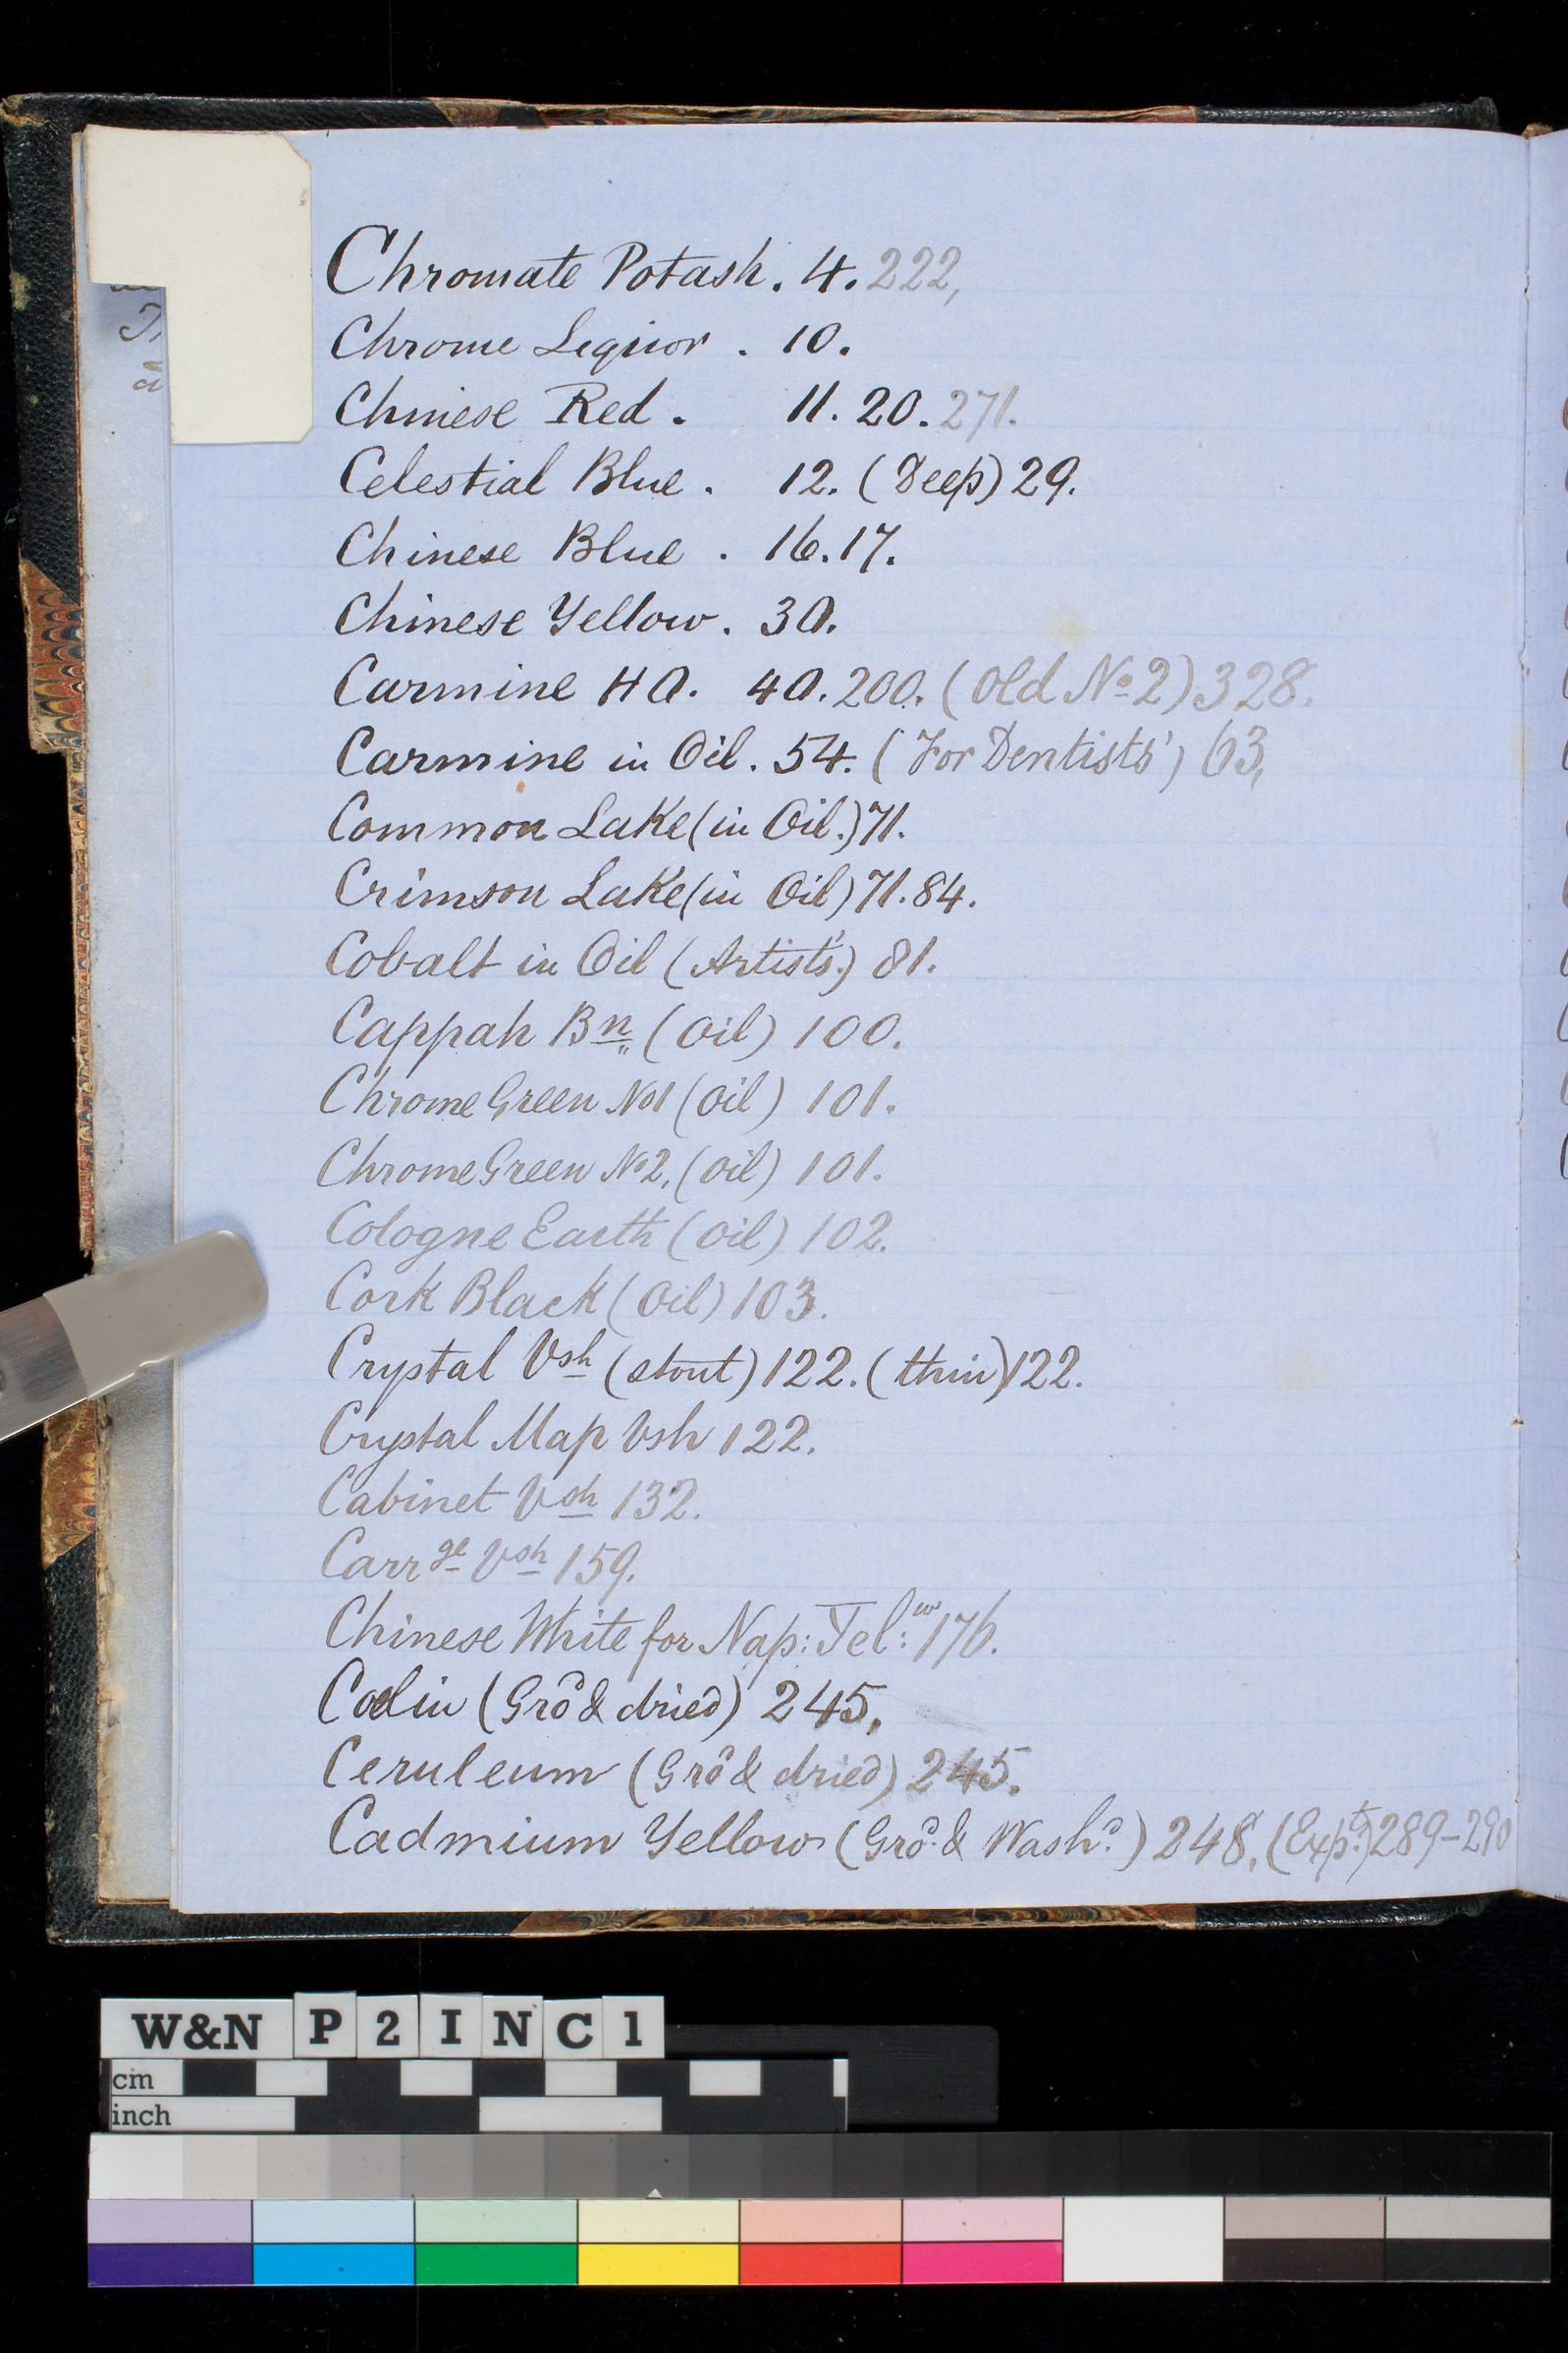 Chromate Potash. 4. 222,
Chrome Liquor. 10.
Chinese Red. 11. 20. 271.
Celestial Blue. 12. (Deep) 29.
Chinese Blue. 16. 17.
Chinese Yellow. 30.
Carmine HO. 40. 200. (Old No 2) 328.
Carmine in Oil. 54. (For Dentists') 63,
Common Lake (in Oil.) 71.
Crimson Lake (in Oil) 71. 84.
Cobalt in Oil (Artists'.) 81.
Cappah Bn (Oil) 100.
Chrome Green No1 (Oil) 101.
Chrome Green No2, (Oil) 101.
Cologne Earth (Oil) 102.
Cork Black (Oil) 103.
Crystal Vsh (stout) 122. (thin) 122.
Crystal Map Vsh 122.
Cabinet Vsh 132.
Carrge Vsh 159.
Chinese White for Nap: Yel:w 176.
Coelin (Grd & dried) 245,
Ceruleum (Grd & dried) 245.
Cadmium Yellow (Grd & Washd.) 248, (Expt.) 289-290
W&N P2INC1
cm
inch